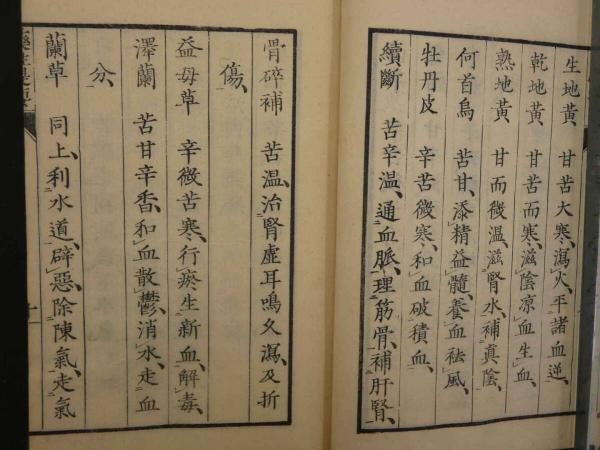 生地黃 甘苦大寒、瀉火、平諸血逆、
乾地黃 甘苦而寒、滋陰涼血生血、
熟地黃 甘而微温、滋腎水、補真陰、
何首烏 苦甘、添精益髓、養血祛風、
牡丹皮 辛苦微寒、和血破積血、
續斷 苦辛温、通血脈、理筋骨、補肝腎、
骨碎補 苦温、治腎虛耳鳴久瀉及折
傷、
益母草 辛微苦寒、行瘀生新血、解毒、
澤蘭 苦甘辛香、和血散鬱、消水、走血
分、
蘭草 同上、利水道、辟惡、除陳氣、走氣